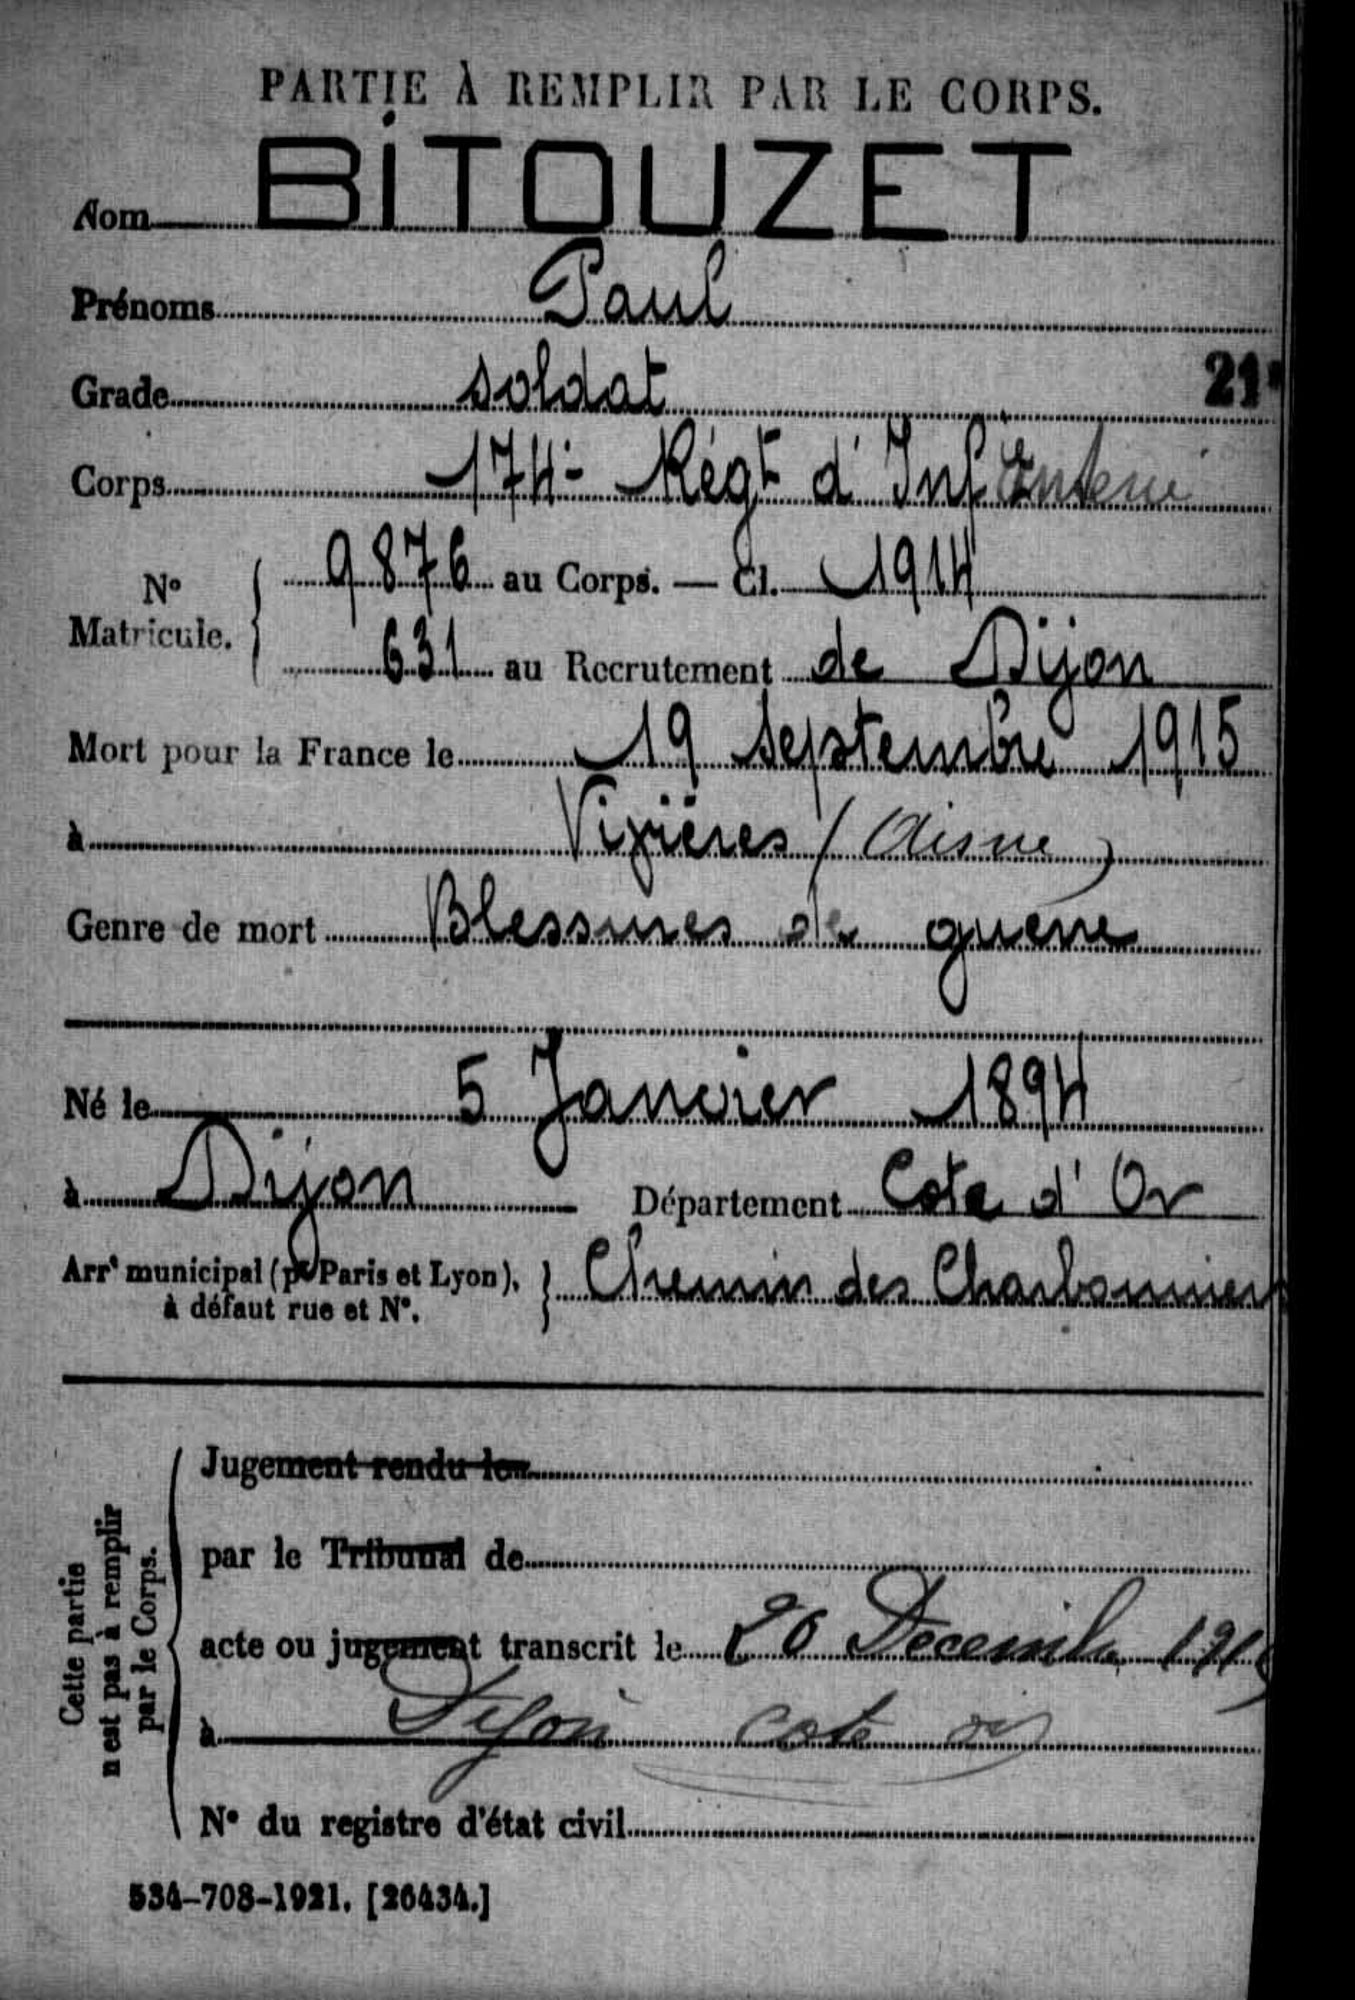 PARTIE À REMPLIR PAR LE CORPS.
Nom BiTOUZET
Prénoms Paul
Grade soldat 21
Corps 174e Régt d'Infanterie
N° Matricule. 9876 au Corps. — Cl. 1914
631 au Recrutement de Dijon
Mort pour la France le 19 septembre 1915
à (Aisne)
Genre de mort Blessures de guerre
Né le 5 Janvier 1894
à Dijon Département Cote d'Or
Arrt municipal (pr Paris et Lyon), à défaut rue et N°. Chemin des Charbonniers
Cette partie n'est pas à remplir par le Corps.
Jugement rendu le
par le Tribunal de
acte ou jugement transcrit le 20 Decembre
à Dijon cote or
N° du registre d'état civil
534-708-1921. [26434.]